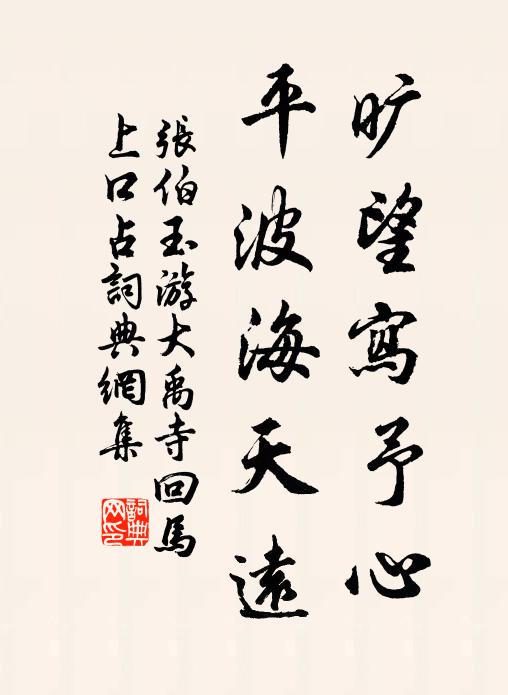 旷望寫予心
平波海天遠
張伯玉游大禹寺回馬
上口占詞典網集
詞典
网印